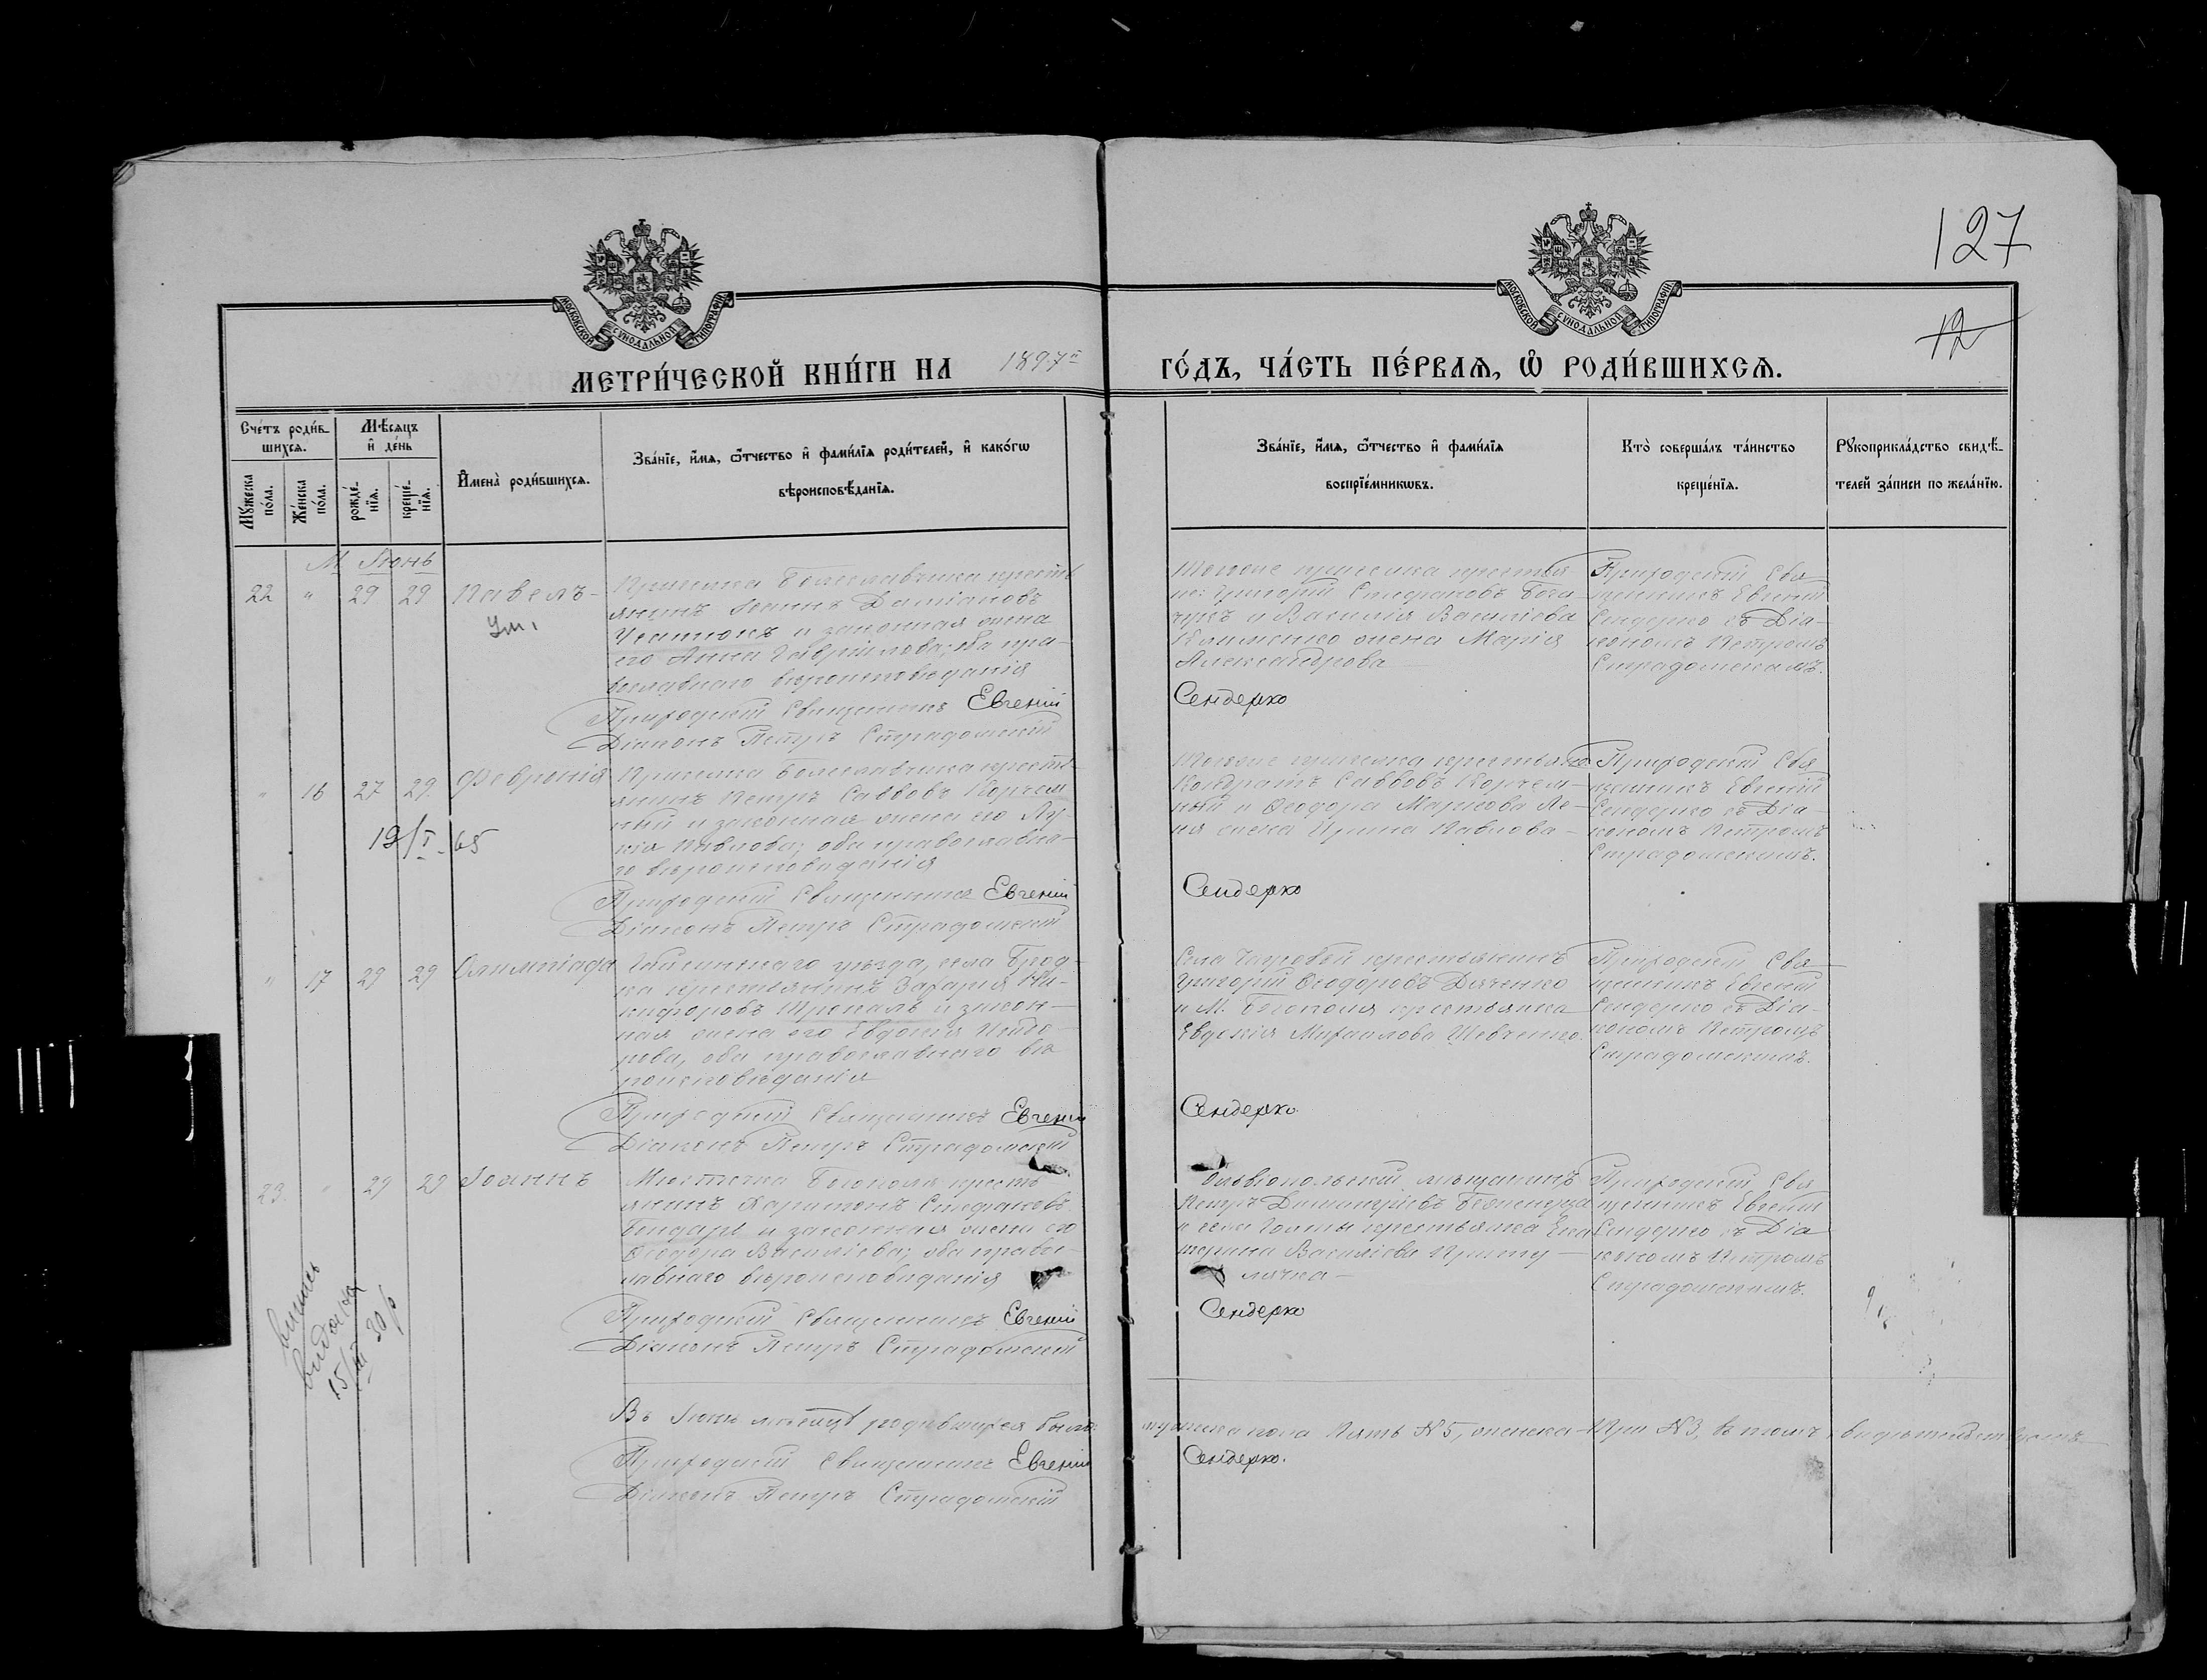 127
12
МОСКОВСКОЙ СѴНОДАЛЬНОЙ ТИПОГРАФІИ
МОСКОВСКОЙ СѴНОДАЛЬНОЙ ТИПОГРАФІИ
МЕТРИ́ЧЕСКОЙ КНИ́ГИ НА 1897 ГО́ДЪ, ЧА́СТЬ ПЕ́РВАЯ, Ѽ РОДИ́ВШИХСЯ.
Сче́тъ роди́в-
шихся.
Му́жеска по́ла.
Же́нска по́ла.
Мѣ́сяцъ
и҆ де́нь
рожде́-
нїя.
креще́-
нїя.
И҆мена̀ роди́вшихся.
Зва́нїе, и҆́мя, ѻ҆́тчество и҆ фами́лїя роди́телей, и҆ како́гѡ
вѣроисповѣ́данїя.
Зва́нїе, и҆́мя, ѻ҆́тчество и҆ фами́лїя
воспрїе́мникѡвъ.
Кто̀ соверша́лъ та́инство
креще́нїя.
Рꙋкоприкла́дство свидѣ́-
телей за́писи по жела́нїю.
М. Іюнь
22 " 29 29 Павелъ
Ум.
Приселка Болеславчика кресть
янинъ Іоаннъ Даміановъ
и законная жена
его Анна Гавриилова; оба пра-
вославнаго вѣроисповѣданія
Приходскій Священникъ Евгеній
Діаконъ Петръ Страдомскій
Тогоже приселка крестья
не: Григорій Стефановъ Бога
чукъ и Василія Василіева
Клименко жена Марія
Александрова
Сендерко
Приходскій Свя-
щенникъ Евгеній
Сендерко съ Діа-
кономъ Петромъ
Страдомскимъ.
" 16 27 29 Февронія
19/I-65
Приселка Болеславчика кресть-
янинъ Петръ Савовъ Корчем
ный и законная жена его Лу-
кія Павлова; оба православна-
го вѣроисповѣданія
Приходскій Священникъ Евгеній
Діаконъ Петръ Страдомскій
Тогоже приселка крестьяне
Кондратъ Саввовъ Корчем-
ный и Ѳеодора Маркова Ле-
ня жена Ирина Павлова
Сендерко
Приходскій Свя
щенникъ Евгеній
Сендерко съ Діа-
кономъ Петромъ
Страдомскимъ.
" 17 29 29 Олимпіада
Гайсинскаго уѣзда, села Брод-
ка крестьянинъ Захарія Ни-
кифоровъ и закон-
ная жена его Евдокія Исидо
рова, оба православнаго вѣ
роисповѣданія
Приходскій Священникъ Евгеній
Діаконъ Петръ Страдомскій
Села Чаусовой крестьянинъ
Григорій Ѳеодоровъ Дяченко
и М. Богополя крестьянка
Евдокія Михаилова Шевченко
Сендерко
Приходскій Свя-
щенникъ Евгеній
Сендерко съ Діа-
кономъ Петромъ
Страдомскимъ.
23 " 29 29 Іоаннъ
15/III 30 р
Мѣстечка Богополя кресть
янинъ Харитонъ Стефановъ
Бондарь и законная жена его
Ѳеодора Василіева; оба правос-
лавнаго вѣроисповѣданія
Приходскій Священникъ Евгеній
Діаконъ Петръ Страдомскій
Ольвіопольскій мѣщанинъ
Петръ Димитріевъ
и села Голты крестьянка Ека
терина Василіева
Сендерко
Приходскій Свя
щенникъ Евгеній
Сендерко съ Діа
кономъ Петромъ
Страдомскимъ.
Въ Іюнѣ мѣсяцѣ родившихся было: мужеска пола Пять №5, женска Три №3, въ томъ и свидѣтельствуемъ
Приходскій Священникъ Евгеній Сендерко.
Діаконъ Петръ Страдомскій